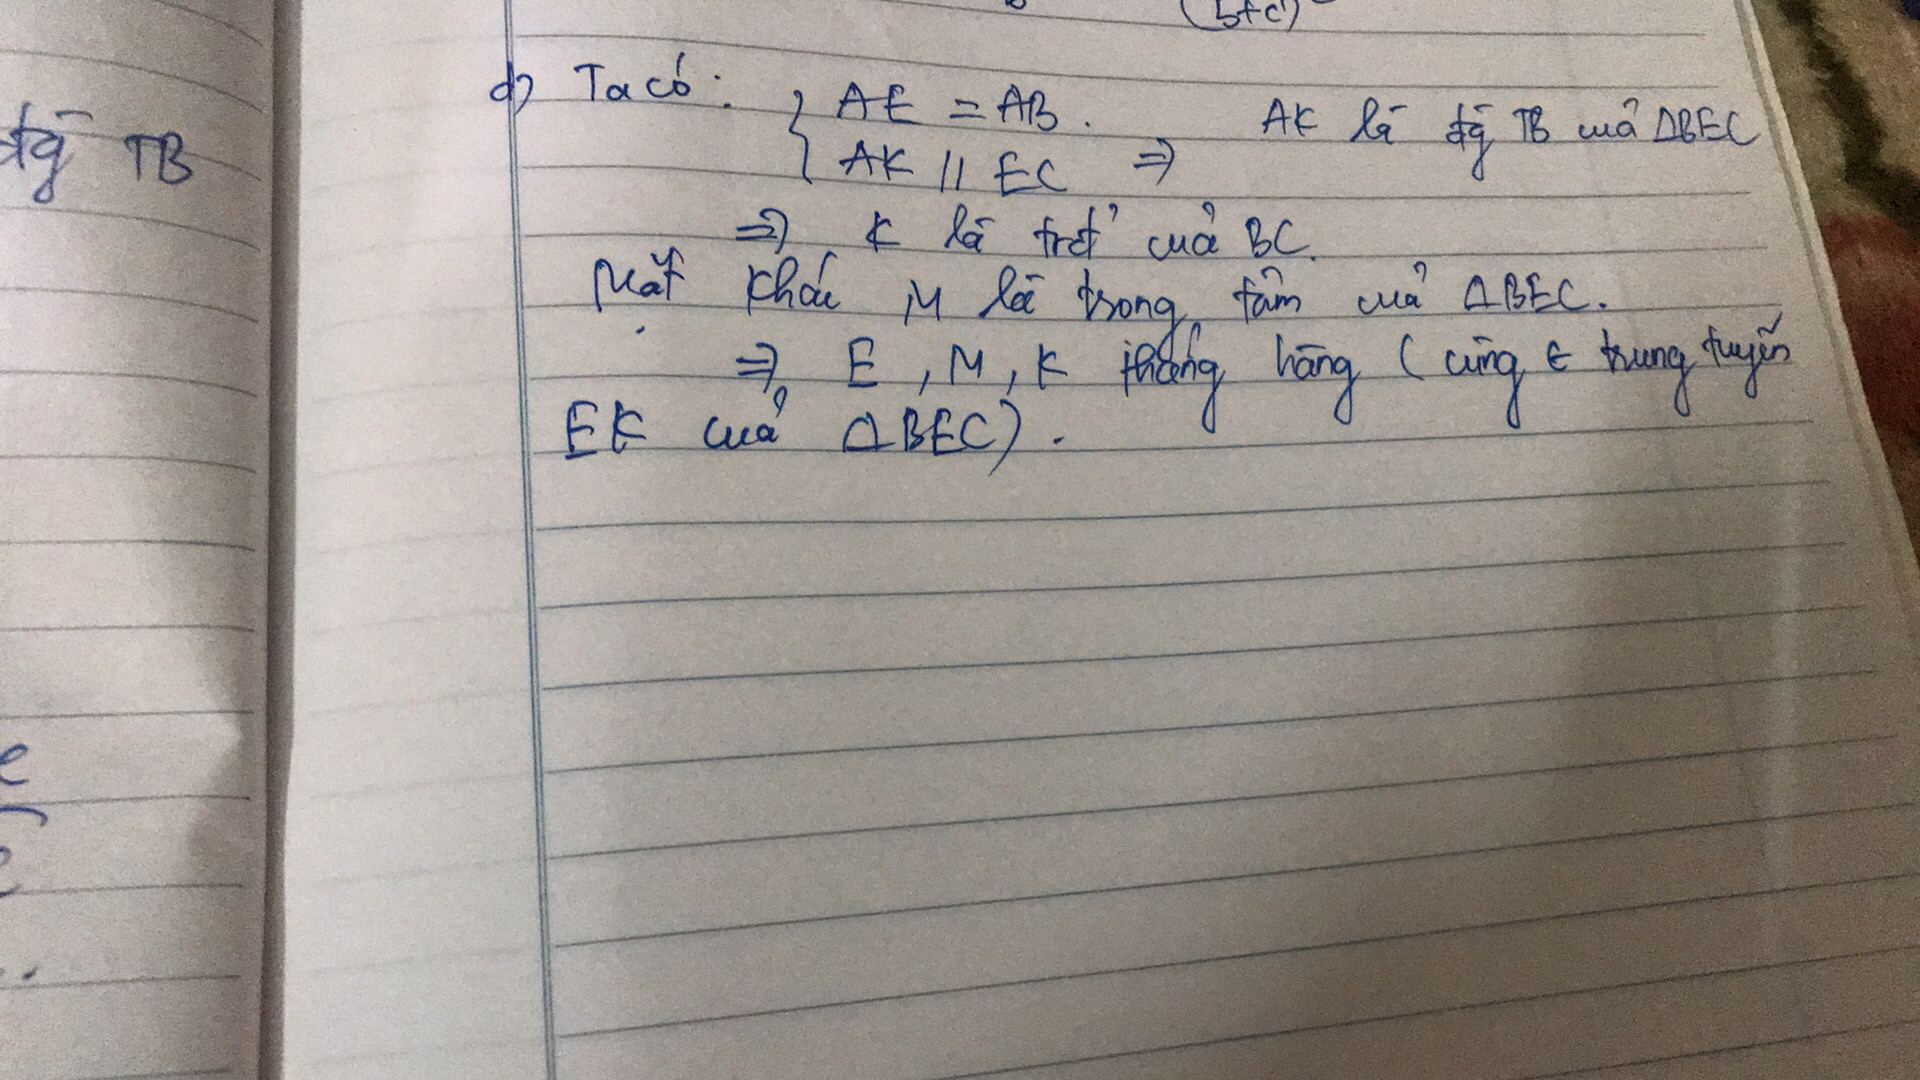 đg TB
e
(b+c)
d) Ta có: { AE = AB. AK là đg TB của ΔBEC
AK // EC ⇒
⇒ K là trđ' của BC.
Mặt khác M là trọng tâm của ΔBEC.
⇒ E, M, K thẳng hàng (cùng ∈ trung tuyến
EK của ΔBEC).